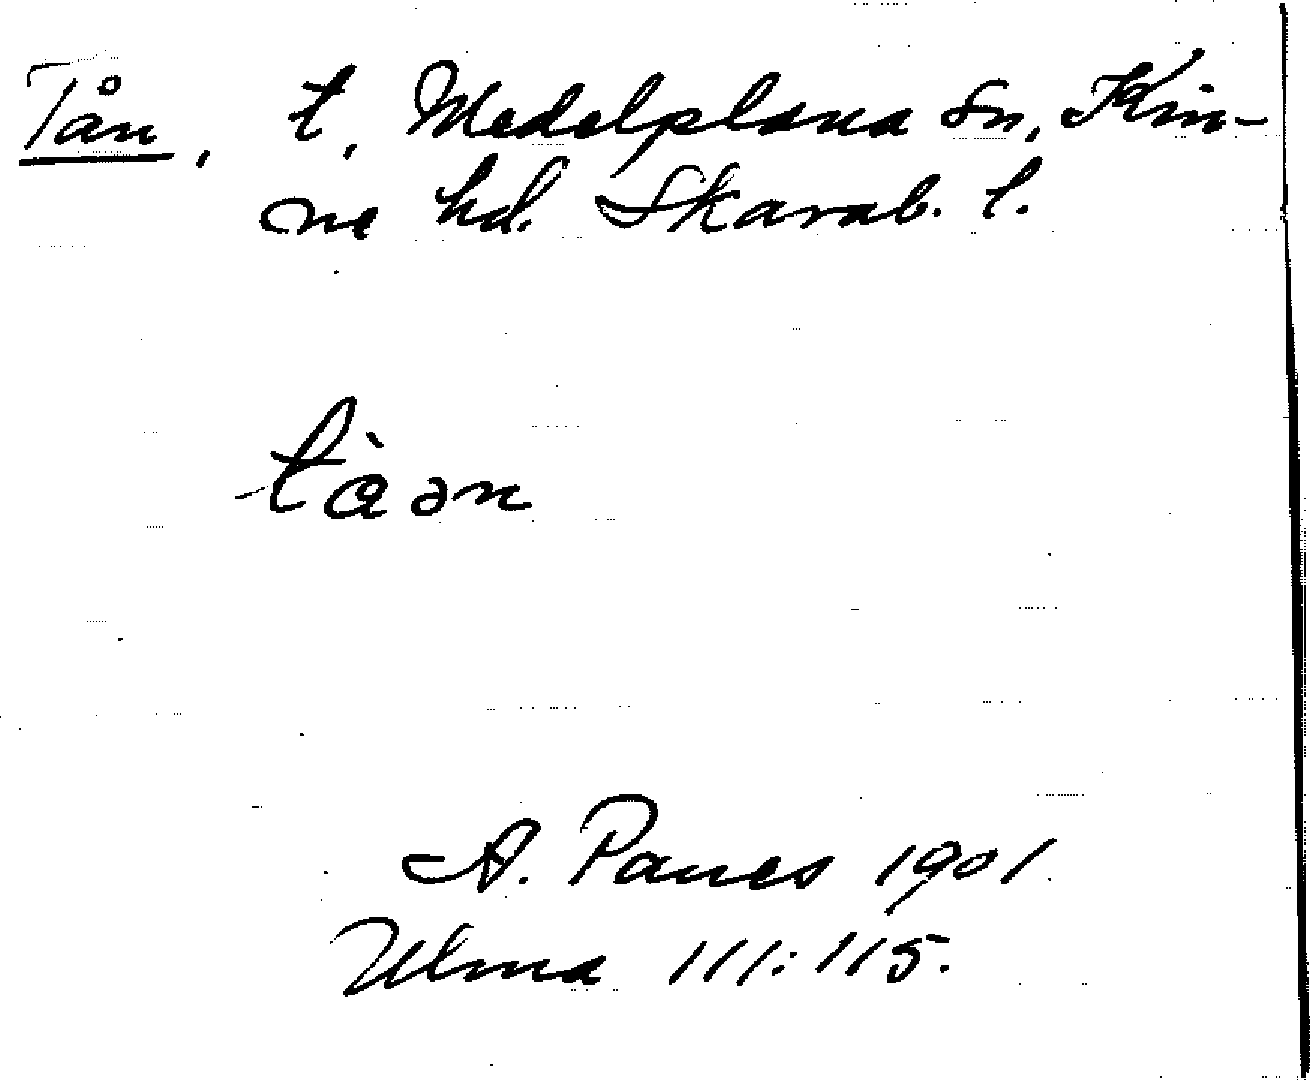 Tån, t, Medelplana sn, Kin-
ne hd. Skarab. l.
tàən
A. Panes 1901
Ulma 111:115.